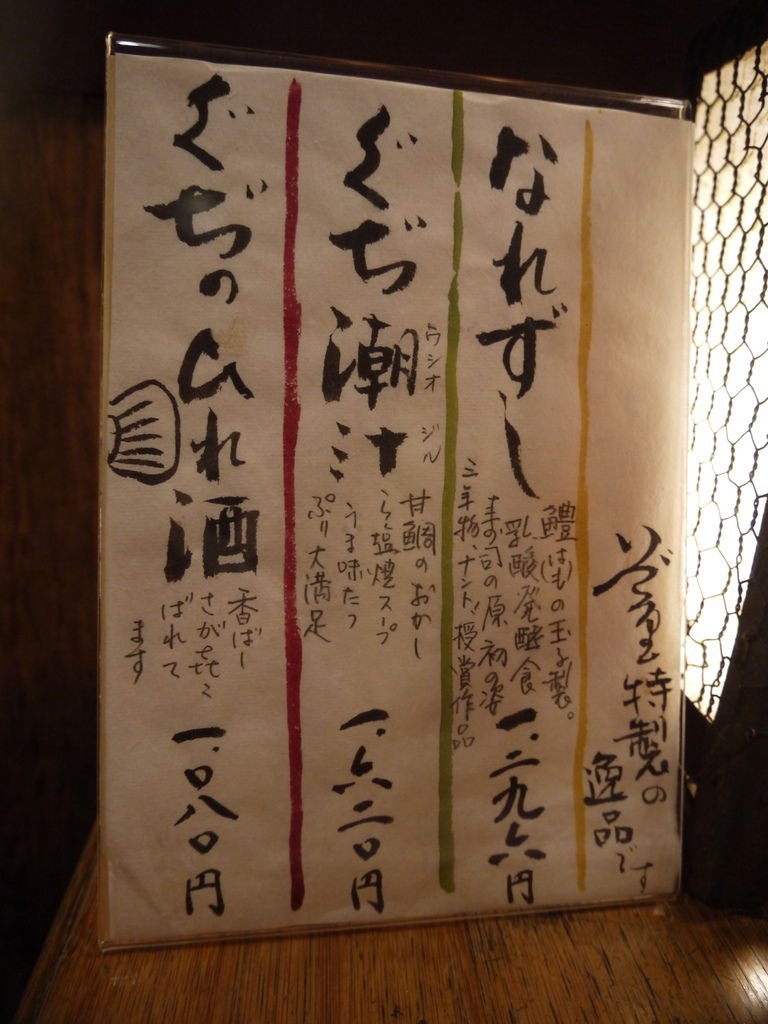 特製の
逸品です
なれずし
鱧(はも)の玉子製。
乳酸発酵食
寿司の原初の姿
三年物、ナント!授賞作品
一.二九六円
ぐぢ潮汁
ウシオ ジル
甘鯛のおかし
塩煙スープ
うま味たつ
ぷり大満足
一.六二〇円
ぐぢのひれ酒
香ばし
さが
ばれて
ます
一.〇八〇円